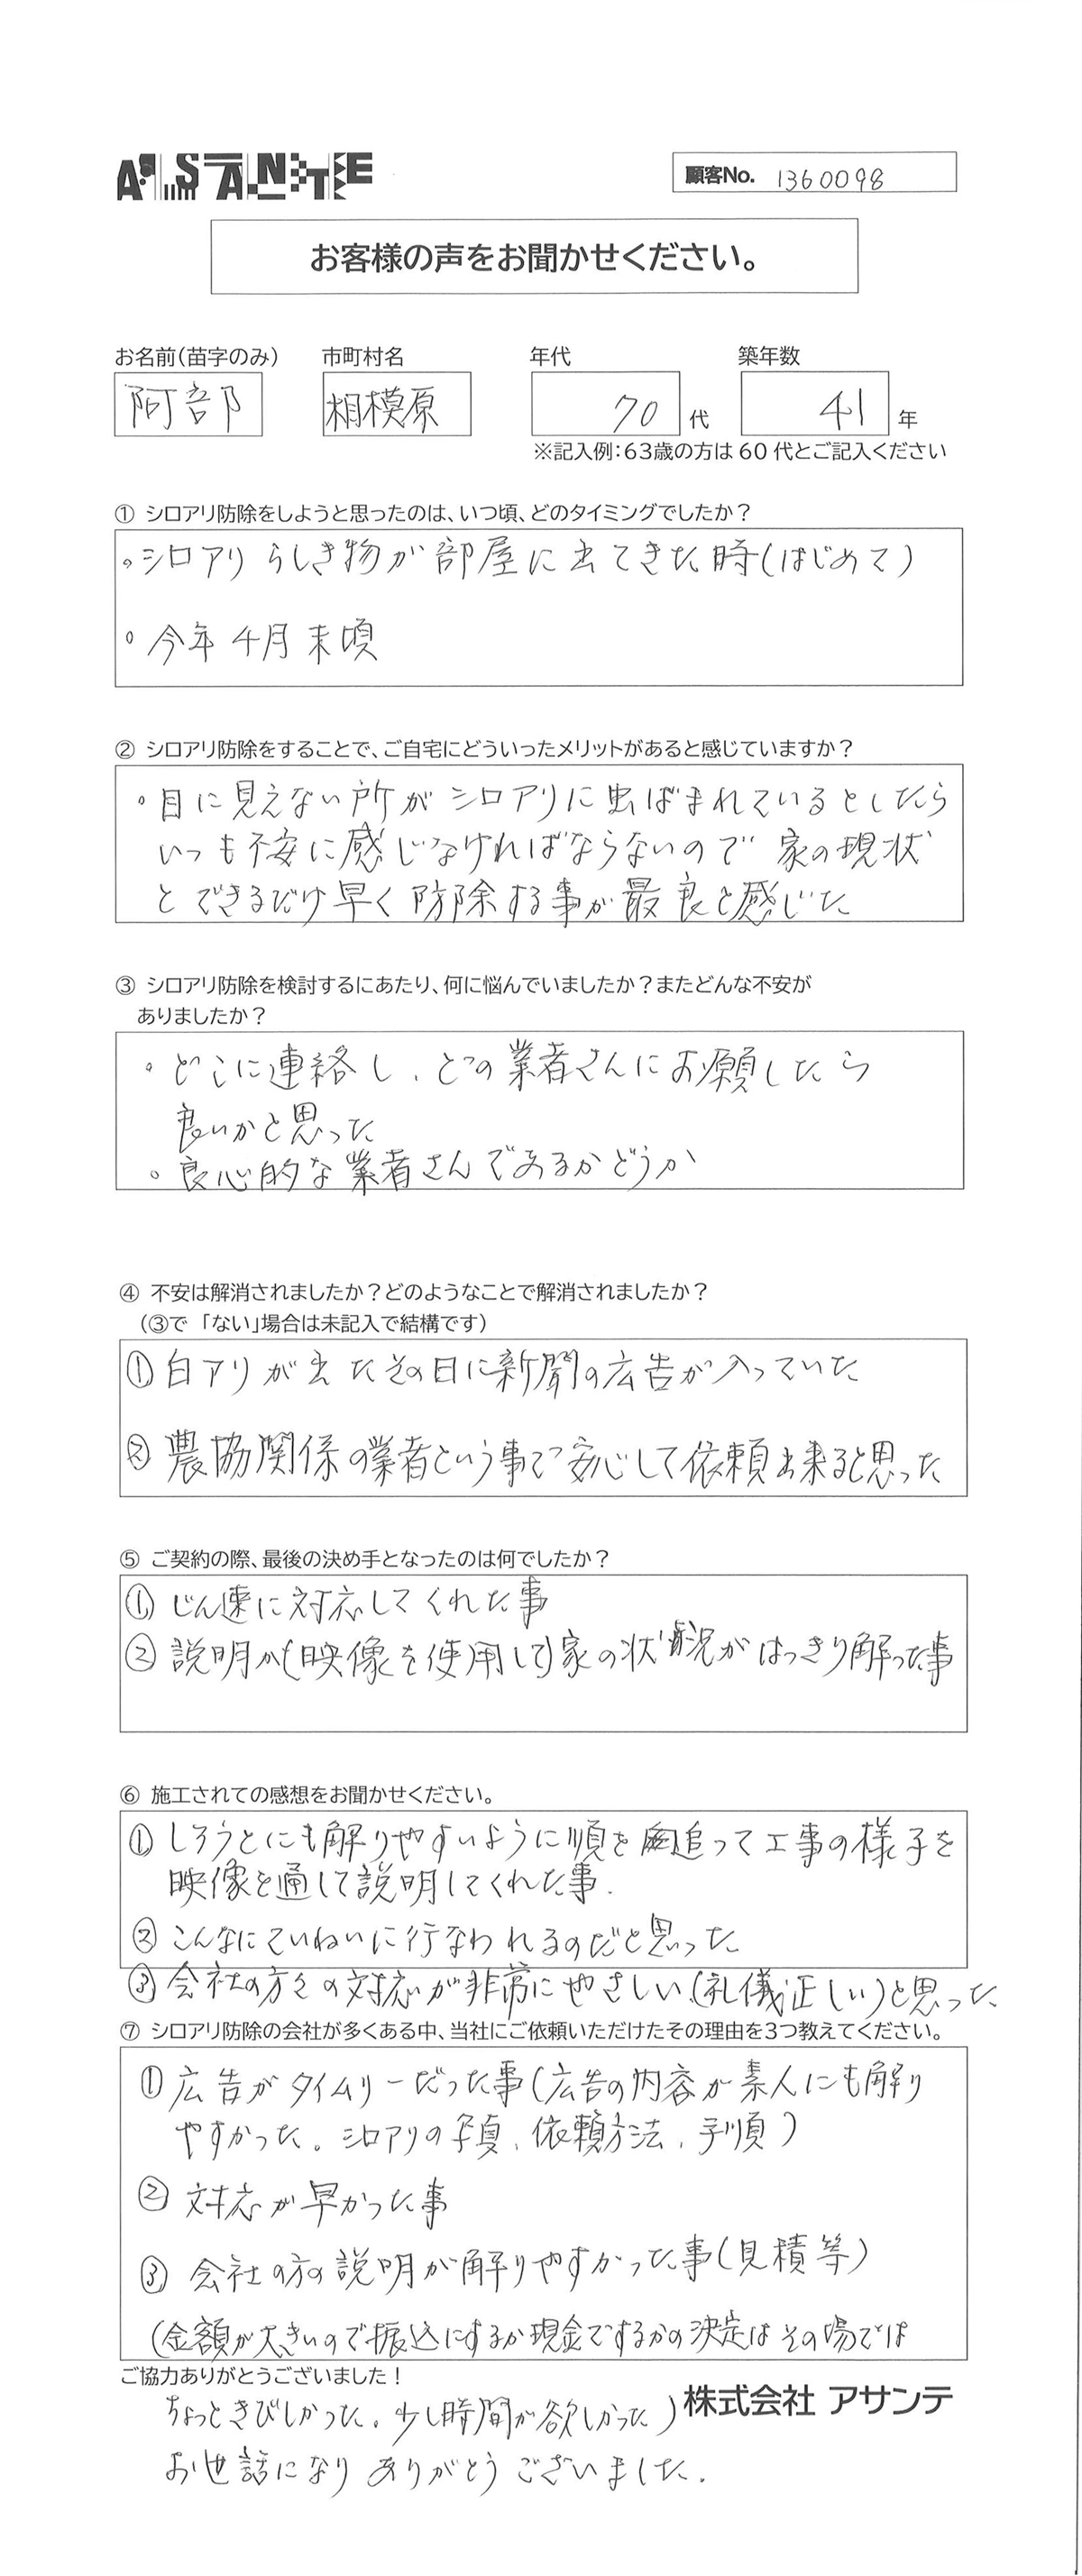 ASANTE
顧客No. 1360098
お客様の声をお聞かせください。
お名前(苗字のみ) 市町村名 年代 築年数
阿部 相模原 70 代 41 年
※記入例：63歳の方は60代とご記入ください
① シロアリ防除をしようと思ったのは、いつ頃、どのタイミングでしたか？
。シロアリらしき物が部屋に出てきた時(はじめて)
。今年4月末頃
② シロアリ防除をすることで、ご自宅にどういったメリットがあると感じていますか？
。目に見えない所がシロアリに虫ばまれているとしたら
いつも不安に感じなければならないので 家の現状
とできるだけ早く防除する事が最良と感じた
③ シロアリ防除を検討するにあたり、何に悩んでいましたか？またどんな不安が
ありましたか？
。どこに連絡し、どの業者さんにお願したら
良いかと思った
。良心的な業者さんであるかどうか
④ 不安は解消されましたか？どのようなことで解消されましたか？
(③で「ない」場合は未記入で結構です)
① 白アリが出たその日に新聞の広告が入っていた
② 農協関係の業者という事で安心して依頼出来ると思った
⑤ ご契約の際、最後の決め手となったのは何でしたか？
① じん速に対応してくれた事
② 説明が(映像を使用して)家の状況がはっきり解った事
⑥ 施工されての感想をお聞かせください。
① しろうとにも解りやすいように順を追って工事の様子を
映像を通して説明してくれた事.
② こんなにていねいに行なわれるのだと思った
③ 会社の方々の対応が非常にやさしい、(礼儀正しい)と思った
⑦ シロアリ防除の会社が多くある中、当社にご依頼いただけたその理由を3つ教えてください。
① 広告がタイムリーだった事(広告の内容が素人にも解り
やすかった。シロアリの写真、依頼方法、手順)
② 対応が早かった事
③ 会社の方の説明が解りやすかった事(見積等)
(金額が大きいので振込にするか現金でするかの決定はその場では
ご協力ありがとうございました！
ちょっときびしかった。少し時間が欲しかった)
株式会社 アサンテ
お世話になりありがとうございました.